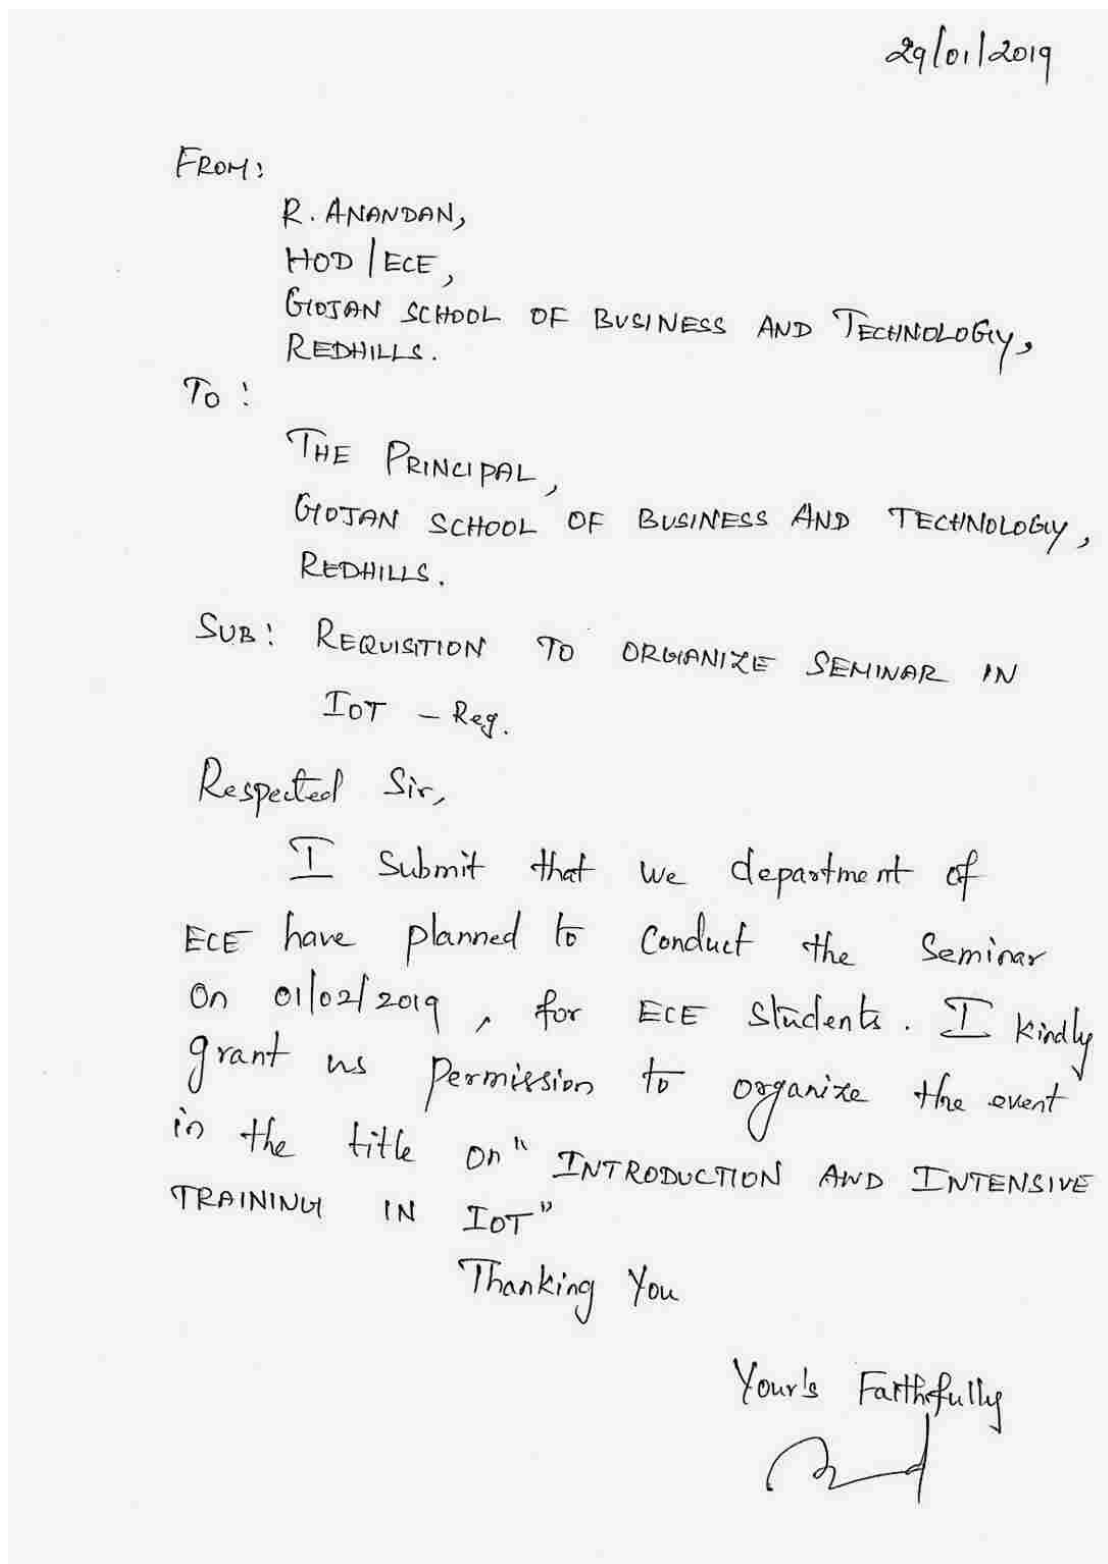 29/01/2019
FROM:
R. ANANDAN,
HOD | ECE,
GOJAN SCHOOL OF BUSINESS AND TECHNOLOGY,
REDHILLS.
TO :
THE PRINCIPAL,
GOJAN SCHOOL OF BUSINESS AND TECHNOLOGY,
REDHILLS.
SUB: REQUISITION TO ORGANIZE SEMINAR IN
IOT – Reg.
Respected Sir,
I Submit that we department of
ECE have planned to Conduct the Seminar
On 01/02/2019, for ECE Students. I kindly
grant us permission to organize the event
in the title on " INTRODUCTION AND INTENSIVE
TRAINING IN IOT"
Thanking You
Your's Faithfully